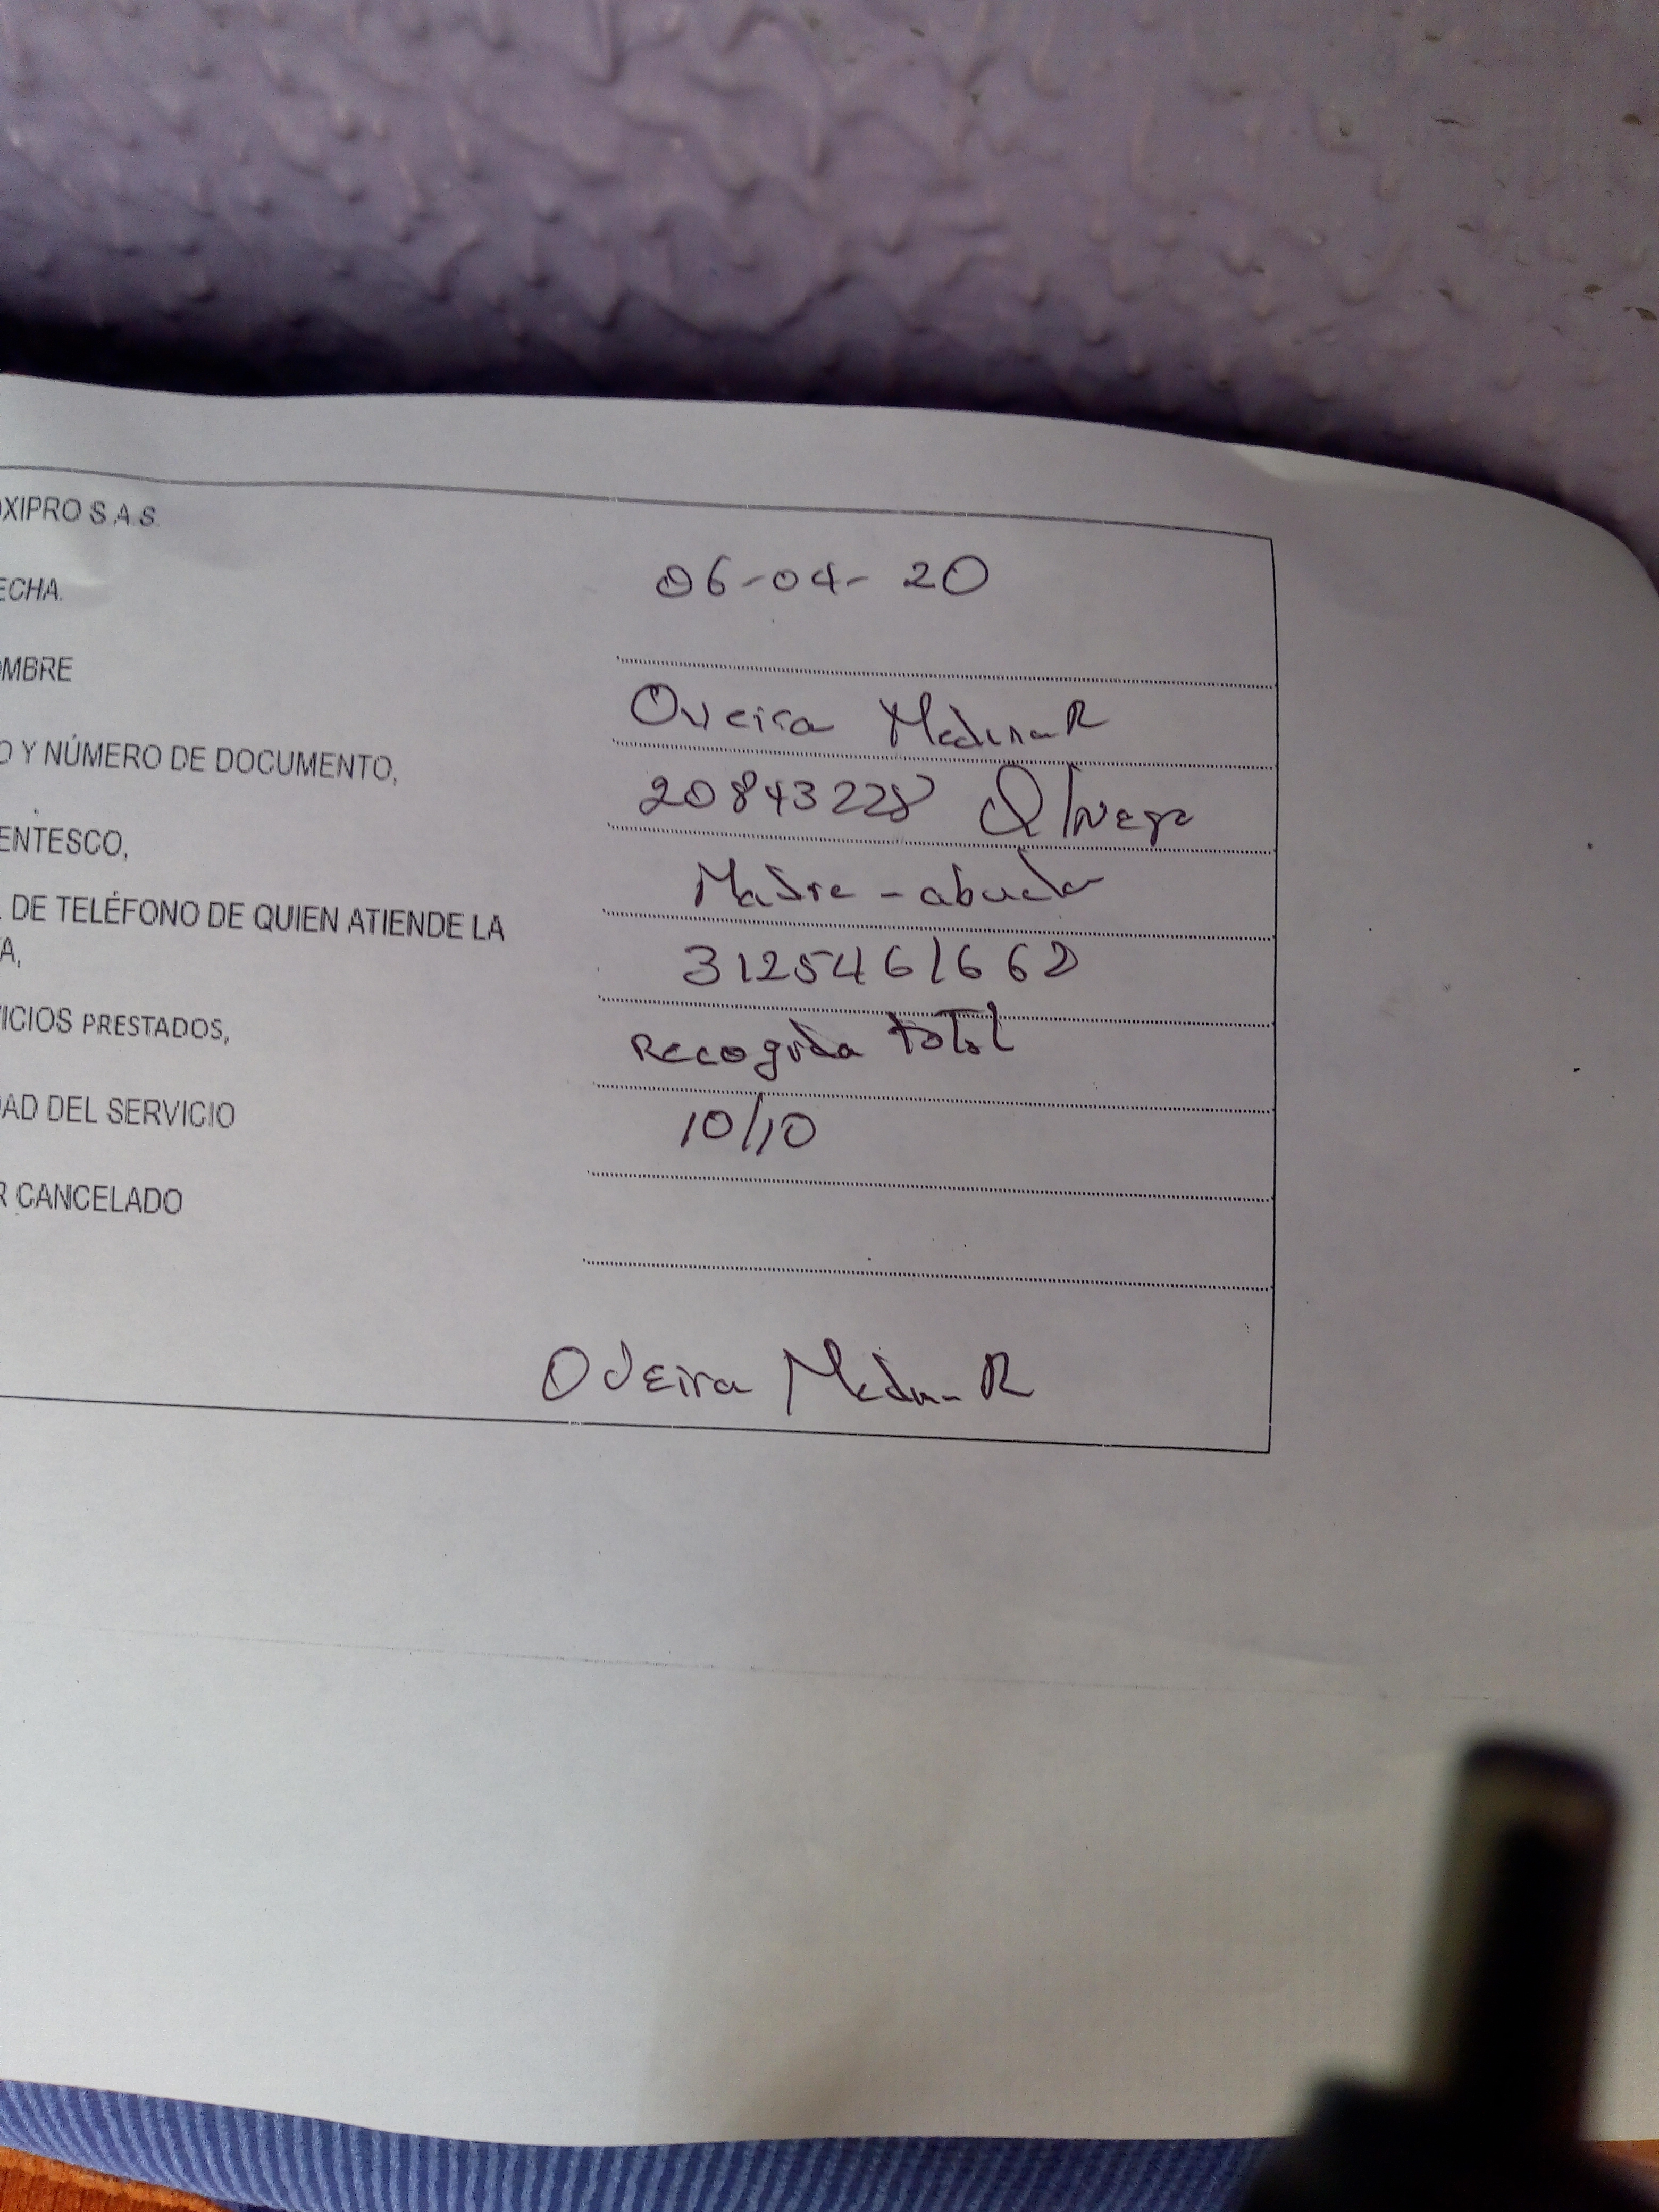 OXIPRO S.A.S.
ECHA. 06-04-20
OMBRE
Oveira Medina R
O Y NÚMERO DE DOCUMENTO,
20843228
ENTESCO,
Madre - abuela
. DE TELÉFONO DE QUIEN ATIENDE LA
TA,
3125461662
VICIOS PRESTADOS,
Recogida total
DAD DEL SERVICIO
10/10
R CANCELADO
Oveira Medina R